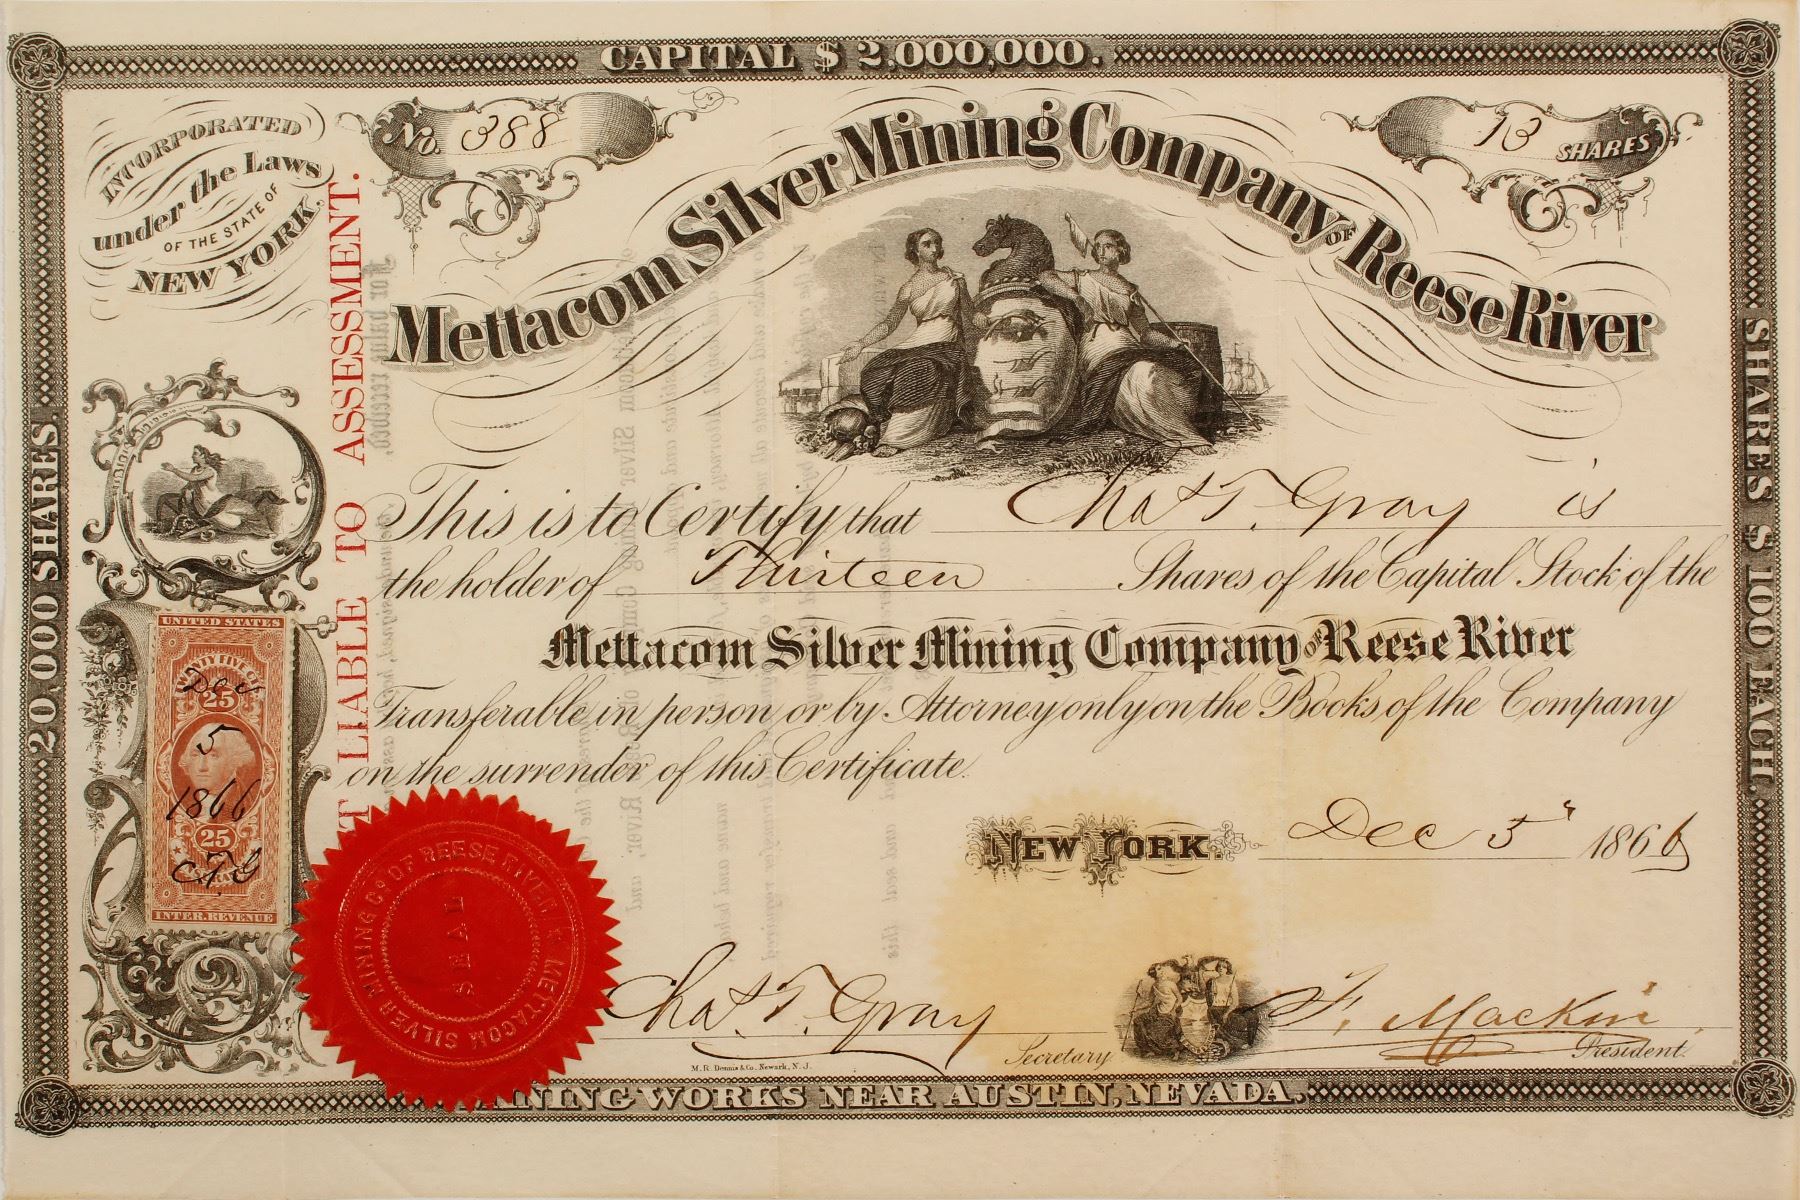 CAPITAL $ 2,000,000.
INCORPORATED
under the Laws
OF THE STATE OF
NEW YORK.
No. 388
13 SHARES
Mettacom Silver Mining Company OF Reese River
20,000 SHARES.
SHARES $ 100 EACH.
T LIABLE TO ASSESSMENT.
This is to Certify that Chas T. Gray is
the holder of Thirteen Shares of the Capital Stock of the
Mettacom Silver Mining Company of Reese River
Transferable in person or by Attorney only on the Books of the Company
on the surrender of this Certificate.
UNITED STATES
TWENTY FIVE
25
Dec
5
1866
25
C.T.G
INTER. REVENUE
NEW YORK. Dec 5" 1866
METTACOM SILVER MINING CO OF REESE RIVER
SEAL
Chas. T. Gray
Secretary.
F. Mackin
President.
M. R. Dennis & Co. Newark, N. J.
NING WORKS NEAR AUSTIN, NEVADA.